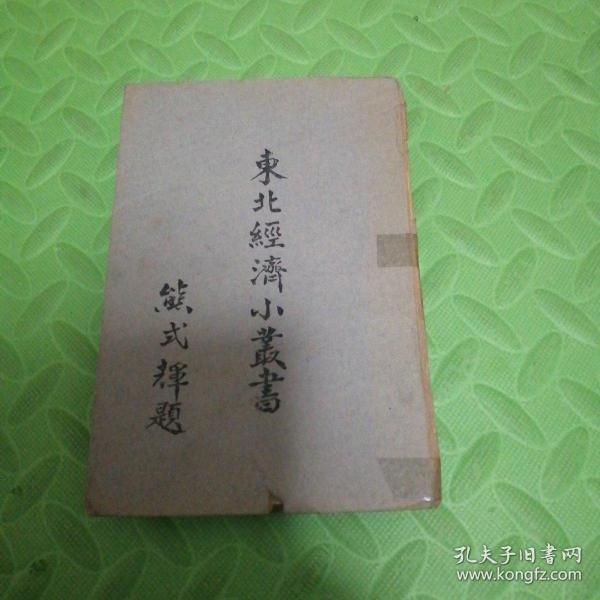 東北經濟小叢書
熊式輝題
孔夫子旧書网
www.kongfz.com